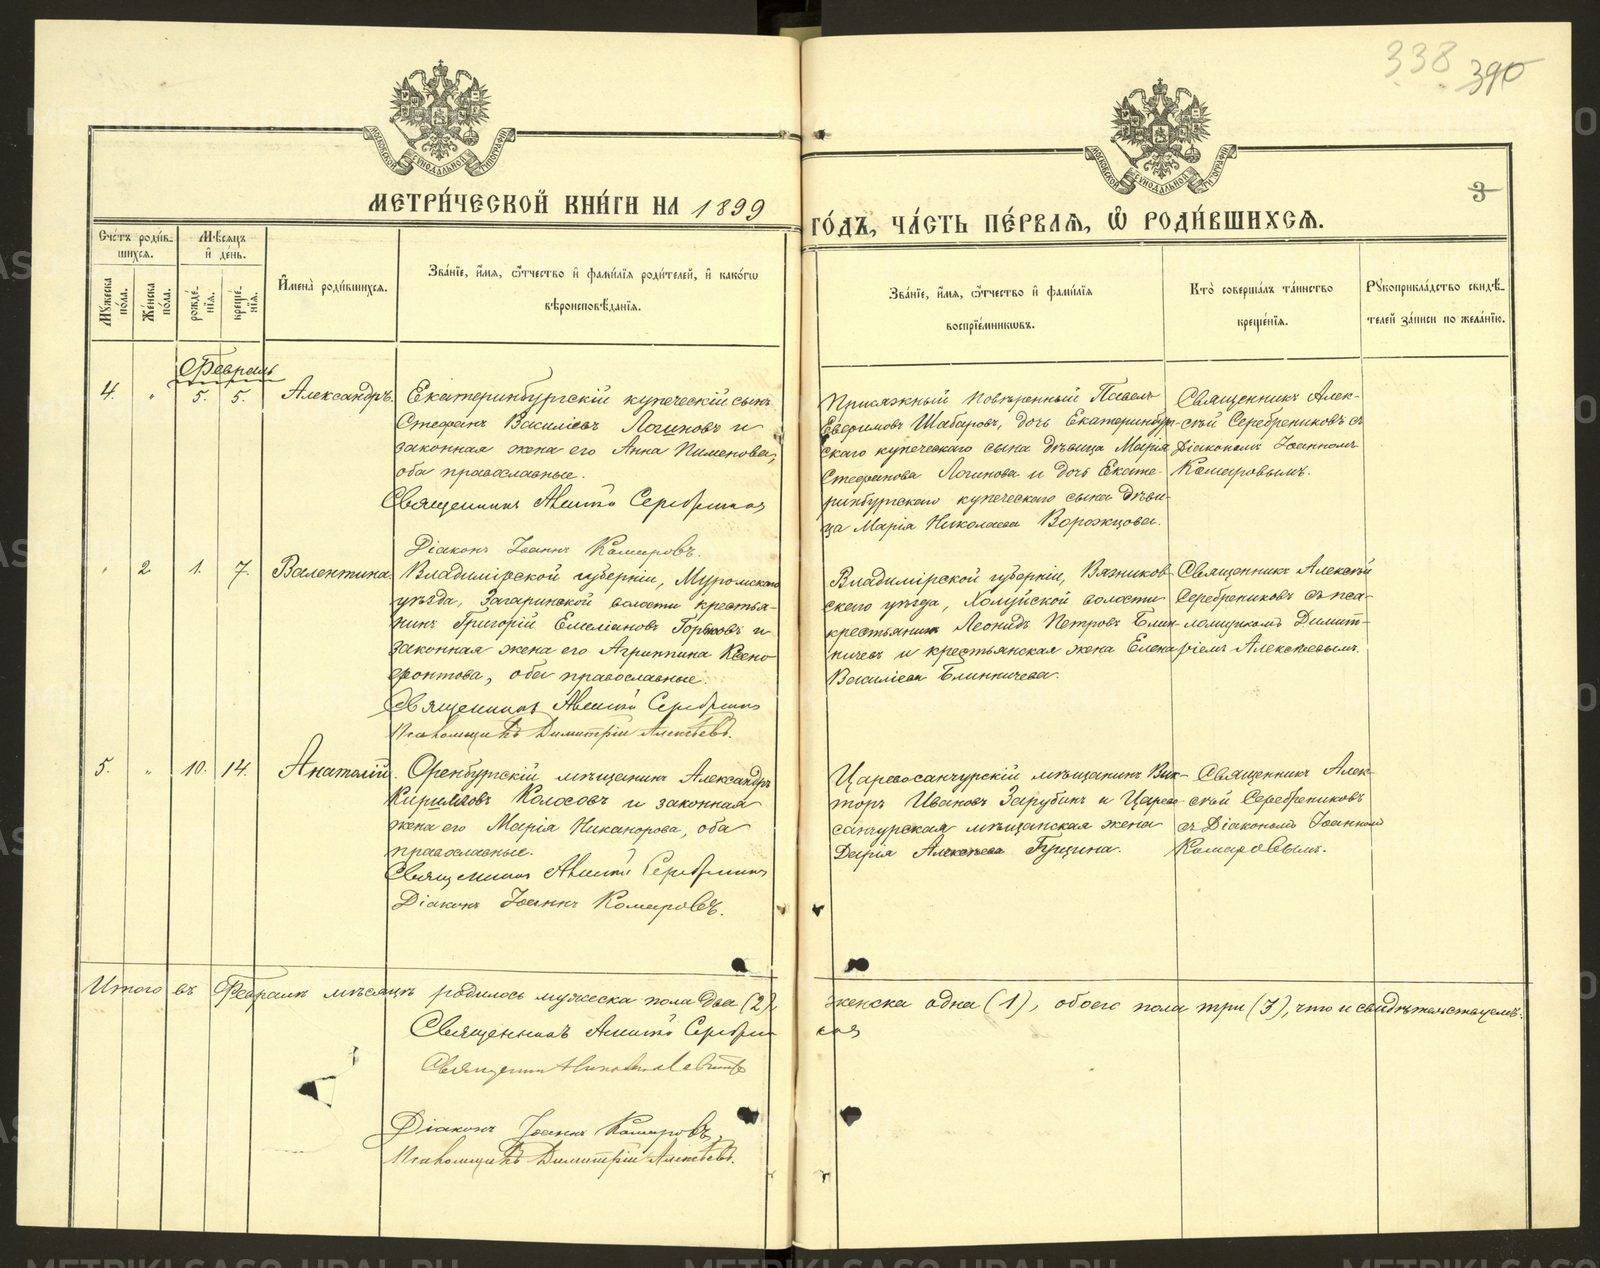 338 390
МОСКОВСКОЙ СѴНОДАЛЬНОЙ ТИПОГРАФІИ
МОСКОВСКОЙ СѴНОДАЛЬНОЙ ТИПОГРАФІИ
3
МЕТРИ́ЧЕСКОЙ КНИ́ГИ НА 1899
ГО́ДЪ, ЧА́СТЬ ПЕ́РВАЯ, Ѽ РОДИ́ВШИХСЯ.
Сче́тъ роди́в-
шихся.
Мѣ́сяцъ
и҆ де́нь.
Мꙋжеска пола.
Же́нска пола.
рожде́нїя.
креще́нїя.
И҆мена̀ роди́вшихся.
Зва́нїе, и҆́мя, ѻ҆́тчество и҆ фами́лїя роди́телей, и҆ како́гѡ
вѣроисповѣ́данїя.
Зва́нїе, и҆́мя, ѻ҆́тчество и҆ фами́лїя
воспрїе́мникѡвъ.
Кто̀ соверша́лъ та́инство
креще́нїя.
Рꙋкоприкла́дство свидѣ́-
телей за́писи по жела́нїю.
Февраль
4. " 5. 5. Александръ.
Екатеринбургскій купеческій сынъ
Стефанъ Василіевъ Логиновъ и
законная жена его Анна Пименова,
оба православные.
Священникъ Алексій Серебрениковъ
Діаконъ Іоаннъ Комаровъ.
Присяжный повѣренный Павелъ
Евфимовъ Шабаровъ, дочь Екатеринбур-
скаго купеческаго сына дѣвица Марія
Стефанова Логинова и дочь Екате-
ринбургскаго купеческаго сына дѣви-
ца Марія Николаева Ворожцова.
Священникъ Алек-
сѣй Серебрениковъ съ
Діакономъ Іоанномъ
Комаровымъ.
" 2 1. 7. Валентина.
Владимірской губерніи, Муромскаго
уѣзда, Загаринской волости крестья-
нинъ Григорій Емеліановъ Горбковъ и
законная жена его Агриппина Ксено-
фонтова, оба православные.
Священникъ Алексій Серебрениковъ
Псаломщикъ Димитрій Алексѣевъ.
Владимірской губерніи, Вязников-
скаго уѣзда, Холуйской волости
крестьянинъ Леонидъ Петровъ Блин-
ничевъ и крестьянская жена Елена
Василіева Блинничева.
Священникъ Алексѣй
Серебрениковъ съ пса-
ломщикомъ Димит-
ріемъ Алексѣевымъ.
5. " 10. 14. Анатолій.
Оренбургскій мѣщанинъ Александръ
Кирилловъ Колосовъ и законная
жена его Марія Никанорова, оба
православные.
Священникъ Алексій Серебрениковъ
Діаконъ Іоаннъ Комаровъ.
Царевосанчурскій мѣщанинъ Вик-
торъ Ивановъ Зарубинъ и Царево-
санчурская мѣщанская жена
Дарія Алексѣева Гущина.
Священникъ Алек-
сѣй Серебрениковъ
съ Діакономъ Іоанномъ
Комаровымъ.
Итого въ Февралѣ мѣсяцѣ родилось мужеска пола два (2), женска одна (1), обоего пола три (3), что и свидѣтельствуемъ:
Священникъ Алексій Серебрениковъ
Священникъ Николай
Діаконъ Іоаннъ Комаровъ,
Псаломщикъ Димитрій Алексѣевъ.